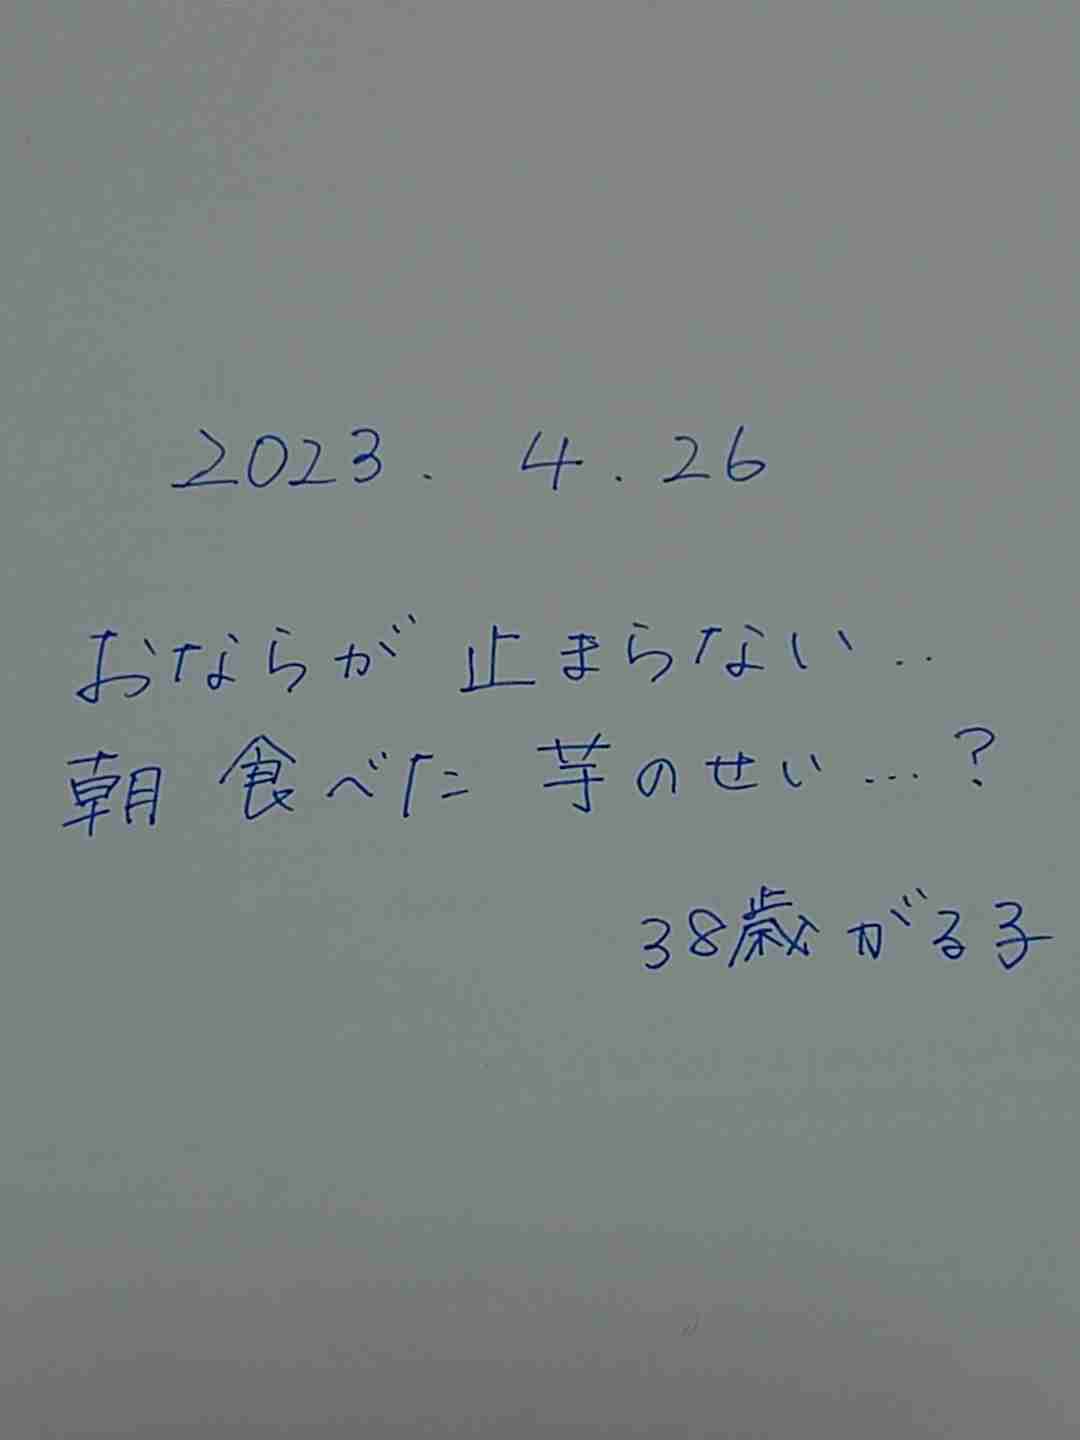 2023. 4.26
おならが止まらない..
朝食べた芋のせい...?
38歳がる子